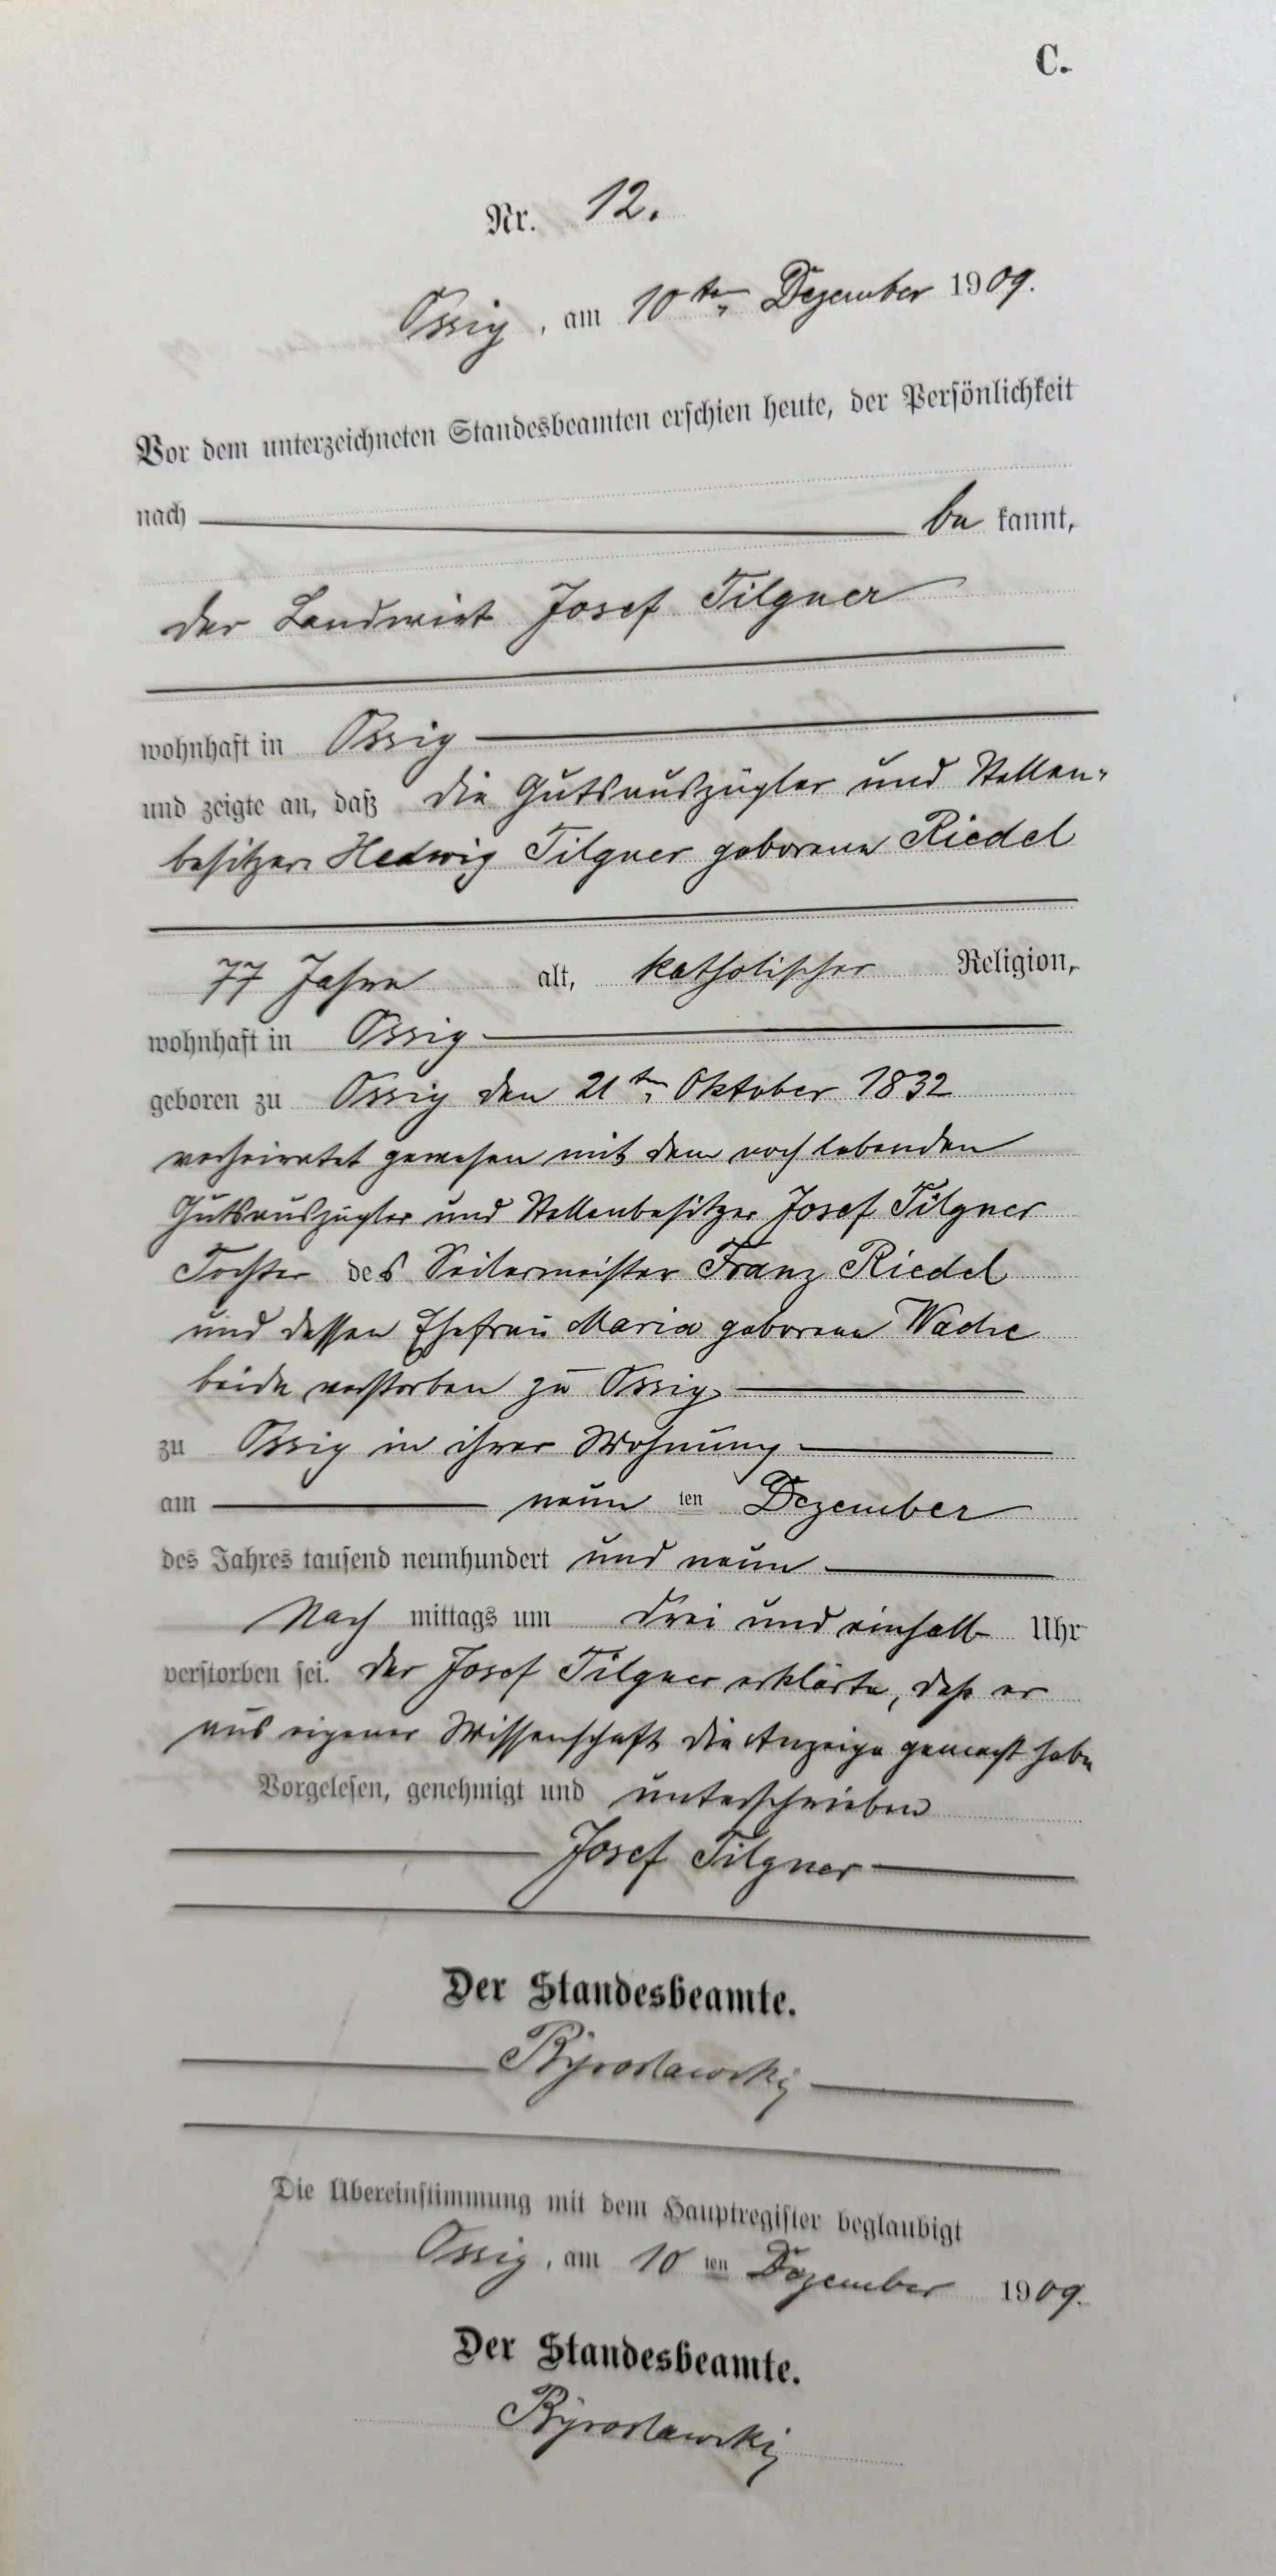 C.
Nr. 12.
Ossig, am 10ten Dezember 1909.
Vor dem unterzeichneten Standesbeamten erschien heute, der Persönlichkeit
nach be kannt,
der Landwirt Josef Tilgner
wohnhaft in Ossig
und zeigte an, daß die Gutsauszügler und Stellen-
besitzer Hedwig Tilgner geborene Riedel
77 Jahre alt, katholischer Religion,
wohnhaft in Ossig
geboren zu Ossig den 21ten Oktober 1832
verheiratet gewesen mit dem noch lebenden
Gutsauszügler und Stellenbesitzer Josef Tilgner
Tochter des Seilermeister Franz Riedel
und dessen Ehefrau Maria geborene
beide verstorben zu Ossig
zu Ossig in ihrer Wohnung
am neun ten Dezember
des Jahres tausend neunhundert und neun
Nach mittags um drei und einhalb Uhr
verstorben sei. Der Josef Tilgner erklärte, daß er
aus eigener Wissenschaft die Anzeige gemacht habe
Vorgelesen, genehmigt und unterschrieben
Josef Tilgner
Der Standesbeamte.
Die Übereinstimmung mit dem Hauptregister beglaubigt
Ossig, am 10ten Dezember 1909.
Der Standesbeamte.